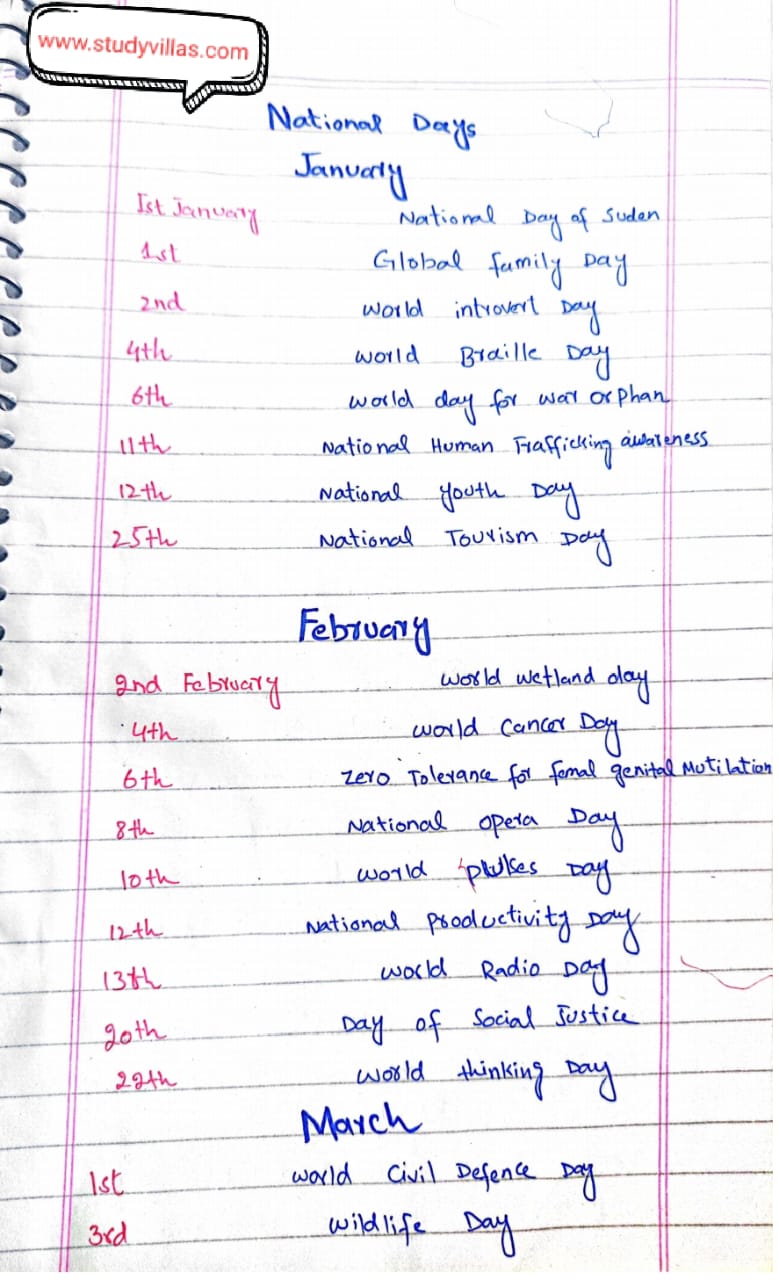 www.studyvillas.com
National Days
January
Ist January National Day of Sudan
1st Global family Day
2nd World introvert Day
4th World Braille Day
6th World day for war orphan
11th National Human Trafficking awareness
12th National youth Day
25th National Tourism Day
February
2nd February World wetland day
4th World Cancer Day
6th Zero Tolerance for femal genital Mutilation
8th National opera Day
10th World pulses Day
12th National productivity Day
13th World Radio Day
20th Day of Social Justice
22th World thinking Day
March
1st World Civil Defence Day
3rd Wildlife Day